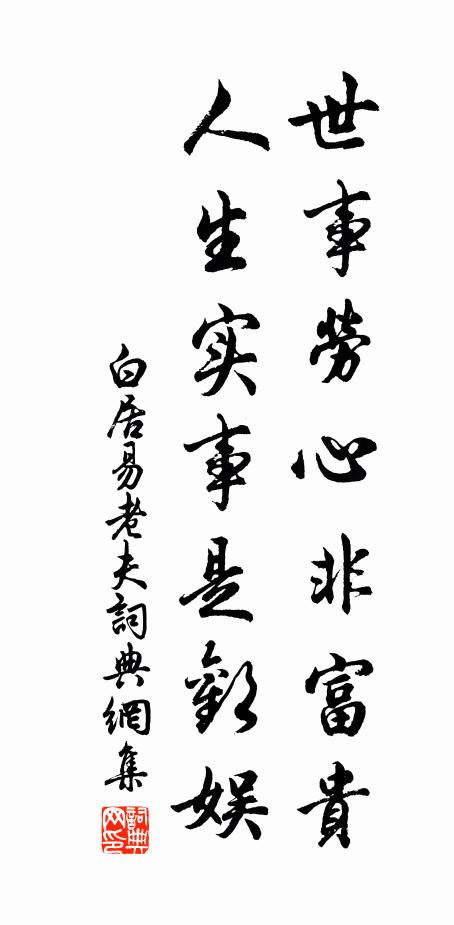 世事勞心非富貴
人生实事是歡娱
白居易老夫詞典網集
詞典网印